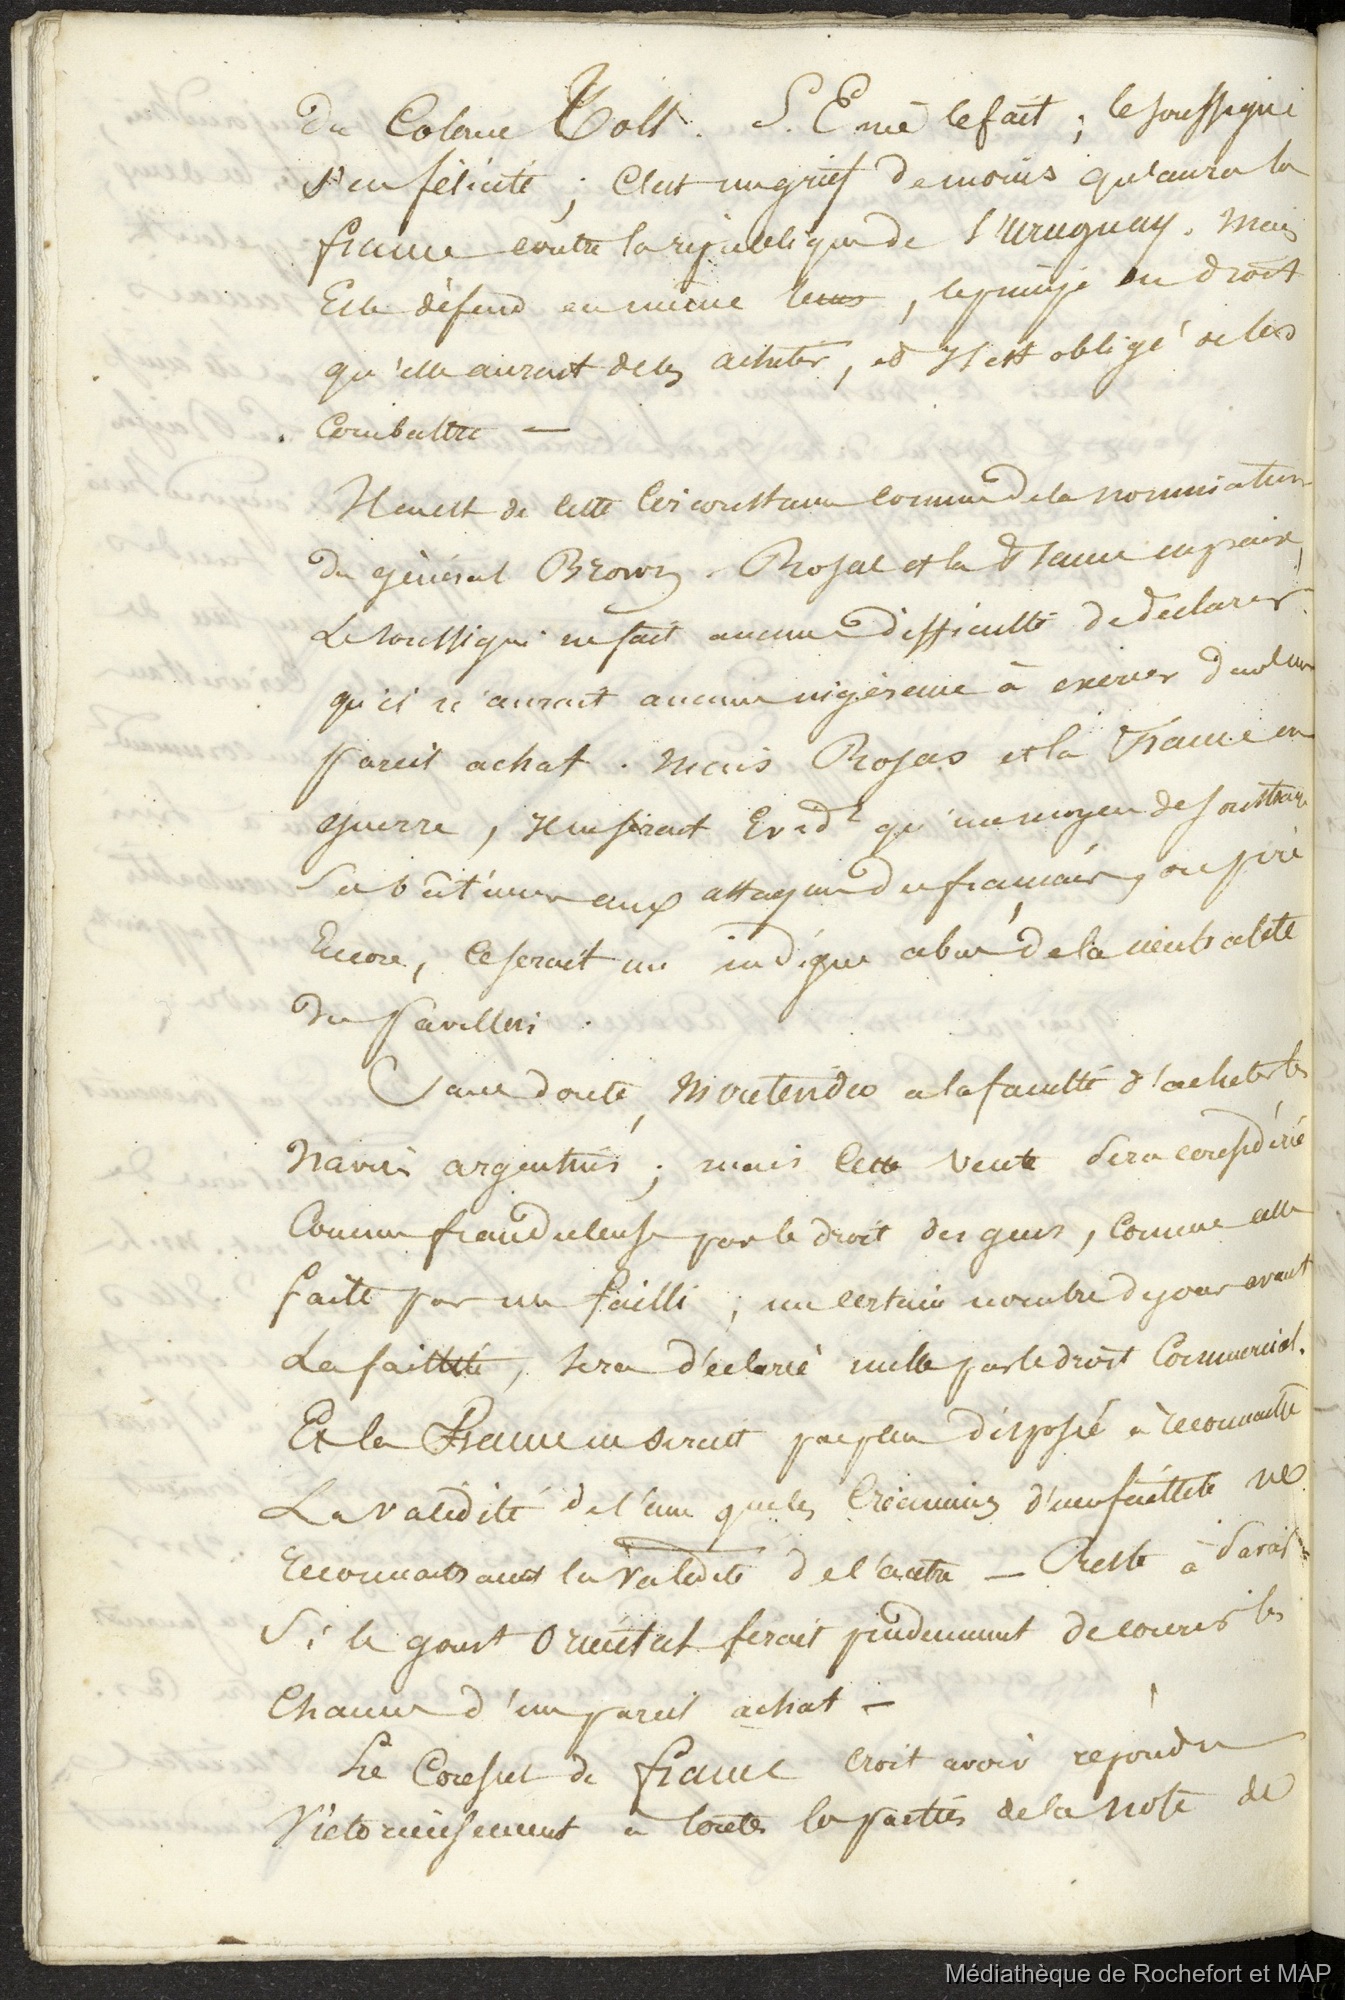 du Colonel Toll. S. E. nie le fait ; le soussigné
s'en félicite ; C'est un grief de moins qu'aura la
france contre la république de l'Uruguay. Mais
Elle défend en même tems, le principe du droit
qu'elle aurait de les acheter, et Il est obligé de les
Combattre —
Il en est de cette Circonstance comme de la nomination
du général Brown. Rosas et la France en paix,
Le soussigné ne fait aucune difficulté de déclarer
qu'il n'aurait aucune ingérence à exercer dans un
pareil achat. Mais Rosas et la France en
guerre, Il ne serait Evid.t qu'un moyen de soustraire
Ses bâtimens aux attaques des français, ou pire
Encore, ce serait un indigne abus de la neutralité
du Pavillon.
Sans doute, Montevideo a la faculté d'acheter les
Navires argentins ; mais cette vente sera considérée
Comme frauduleuse par le droit des gens, comme celle
faite par un failli, un certain nombre de jours avant
La faillite, sera déclarée nulle par le droit Commercial.
Et la France ne serait pas plus disposée à reconnaître
La validité de l'une que les Créanciers d'une faillite ne
reconnaissent la Validité de l'autre — Reste à Savoir
Si le gouvt Oriental ferait prudemment de courir les
Chances d'un pareil achat —
Le Consul de france croit avoir répondu
Victorieusement à toutes les parties de la note de
Médiathèque de Rochefort et MAP